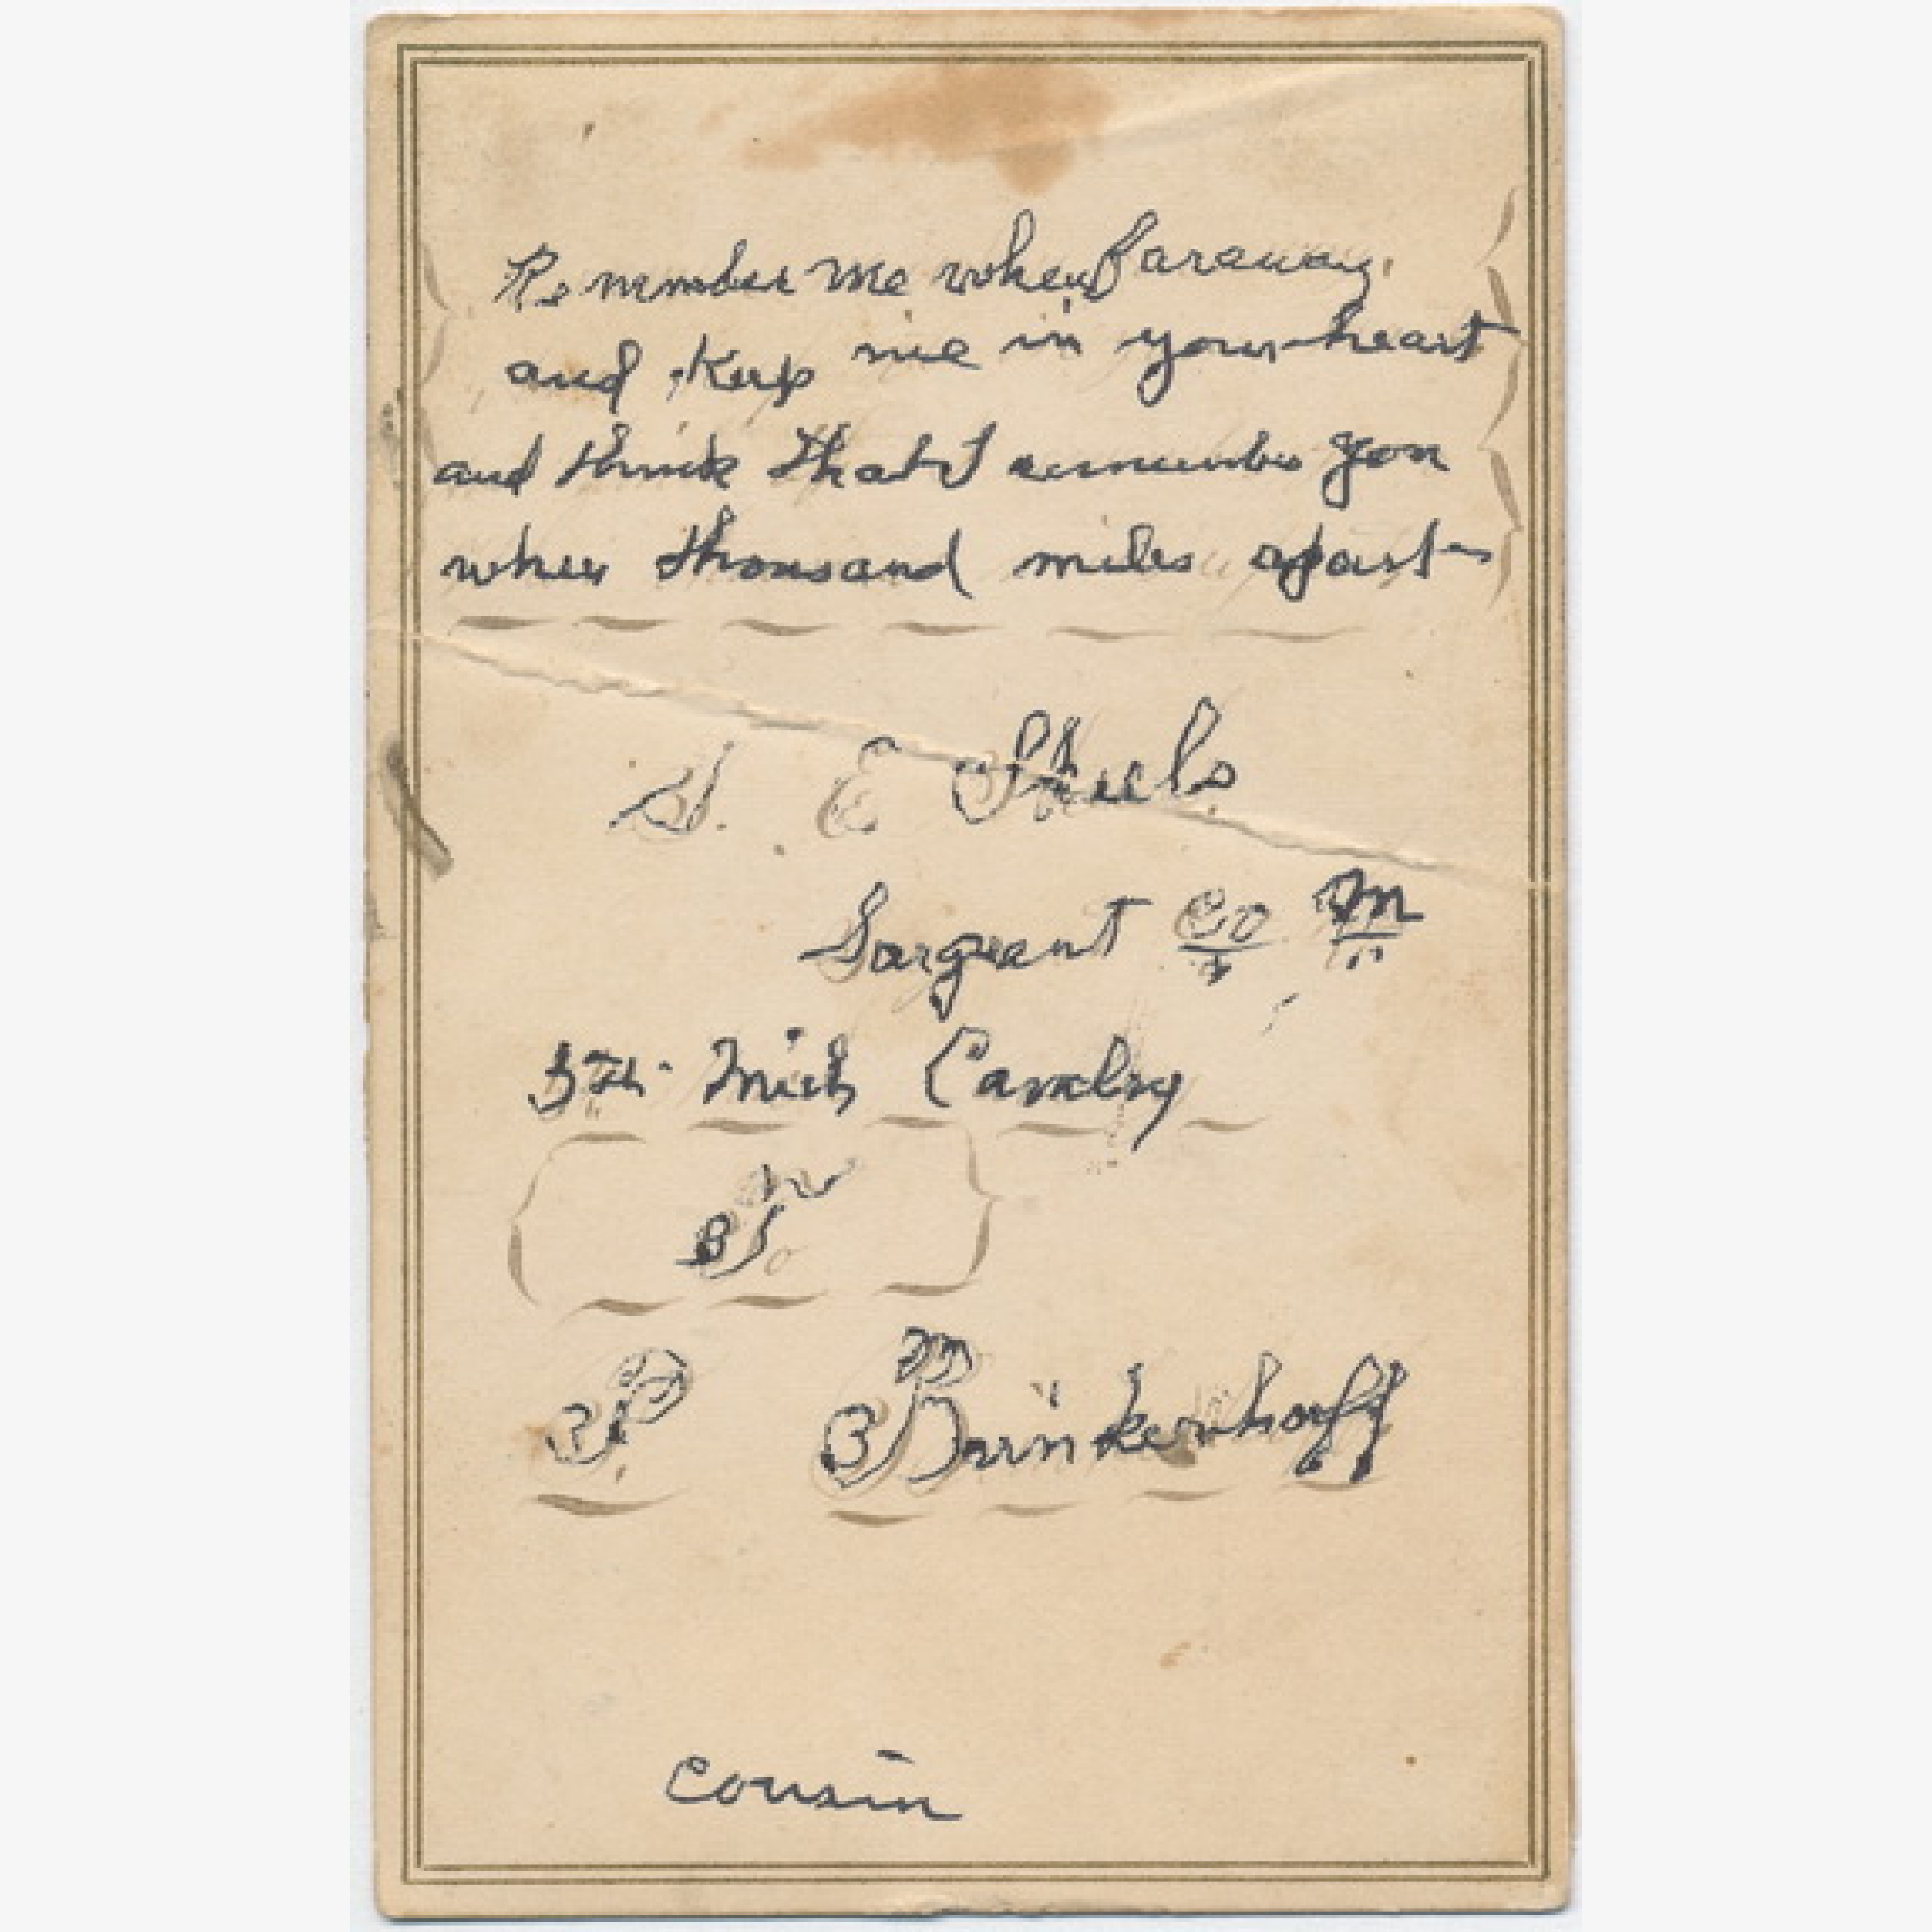 Remember me when faraway
and Keep me in your heart
and think that I remember you
when thousand miles apart
S. E Steele
Sargeant Co M
5th Mich Cavalry
To
P Brinkerhoff
cousin